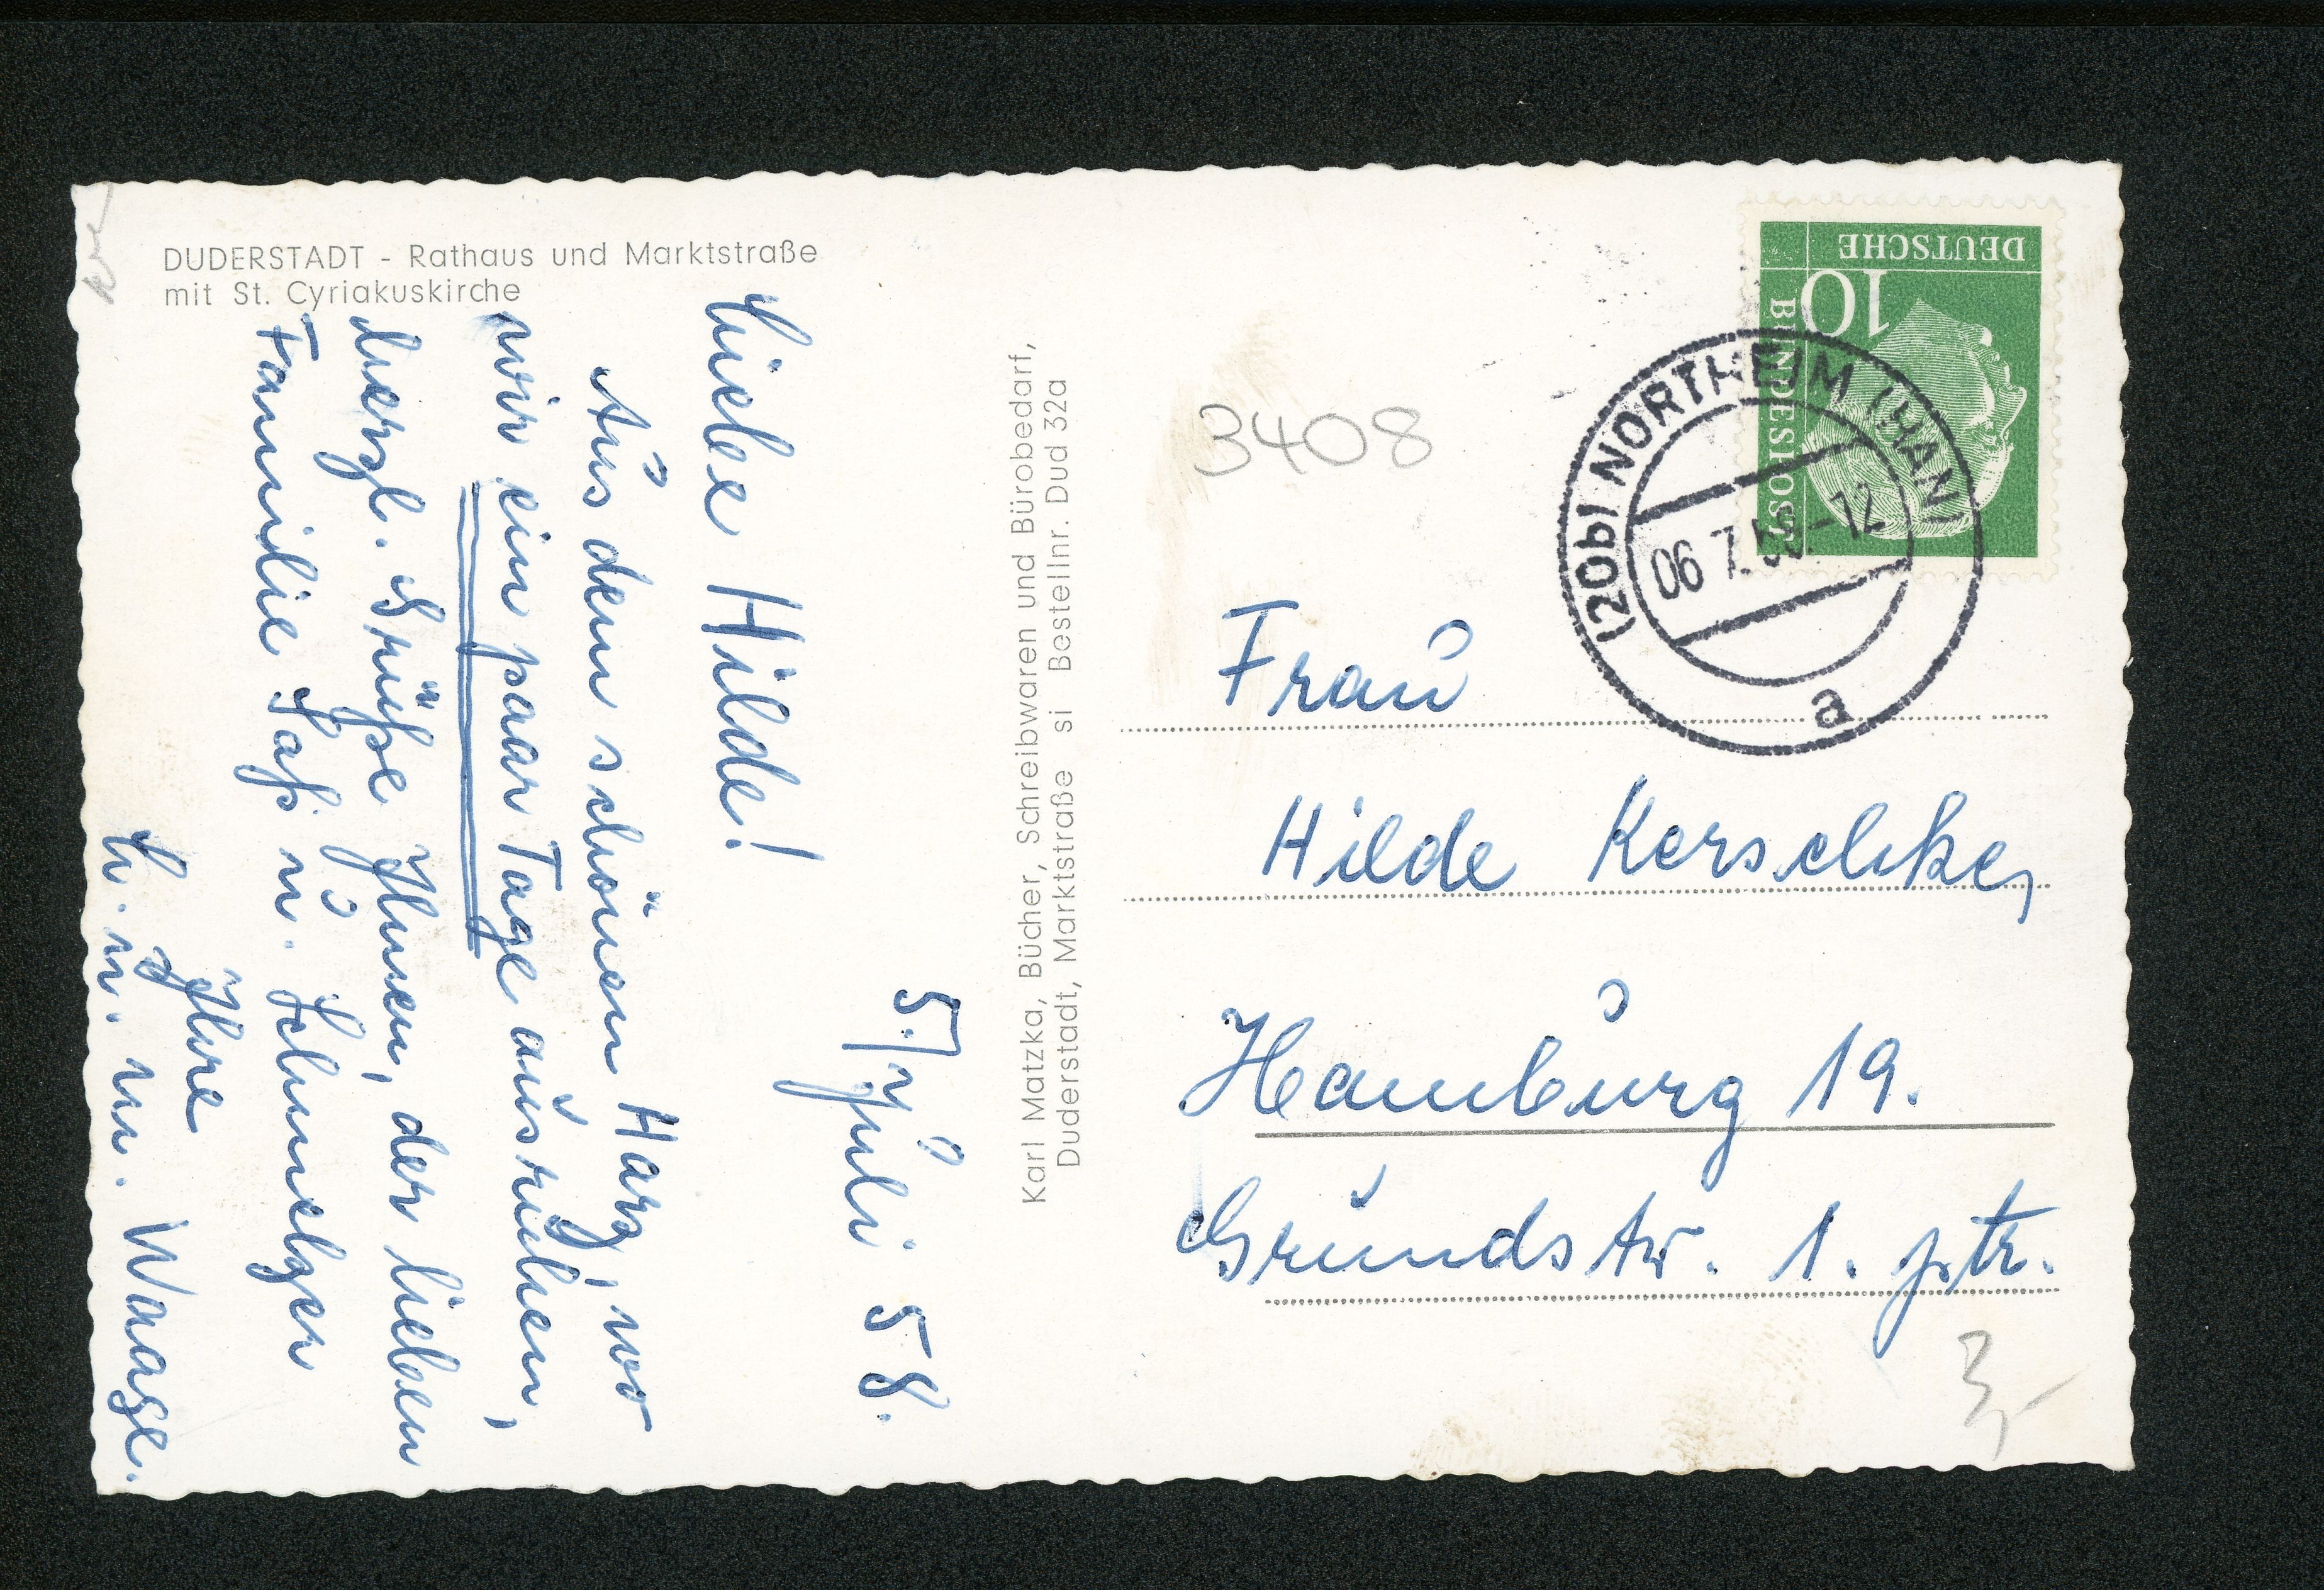 DUDERSTADT - Rathaus und Marktstraße
mit St. Cyriakuskirche
5./Juli 58.
Liebe Hilde!
Aus dem schönen Harz, wo
wir ein paar Tage ausruhen,
herzl. Grüße Ihnen, der lieben
Familie Saß u. Schmelzer
Ihre
u. m. Waase.
Karl Matzka, Bücher, Schreibwaren und Bürobedarf,
Duderstadt, Marktstraße si Bestellnr. Dud 32a
3408
DEUTSCHE
BUNDESPOST
10
(20b) NORTHEIM (HAN)
06 7. -12
a
Frau
Hilde
Hamburg 19.
Grundstr. 1. ptr.
3,-